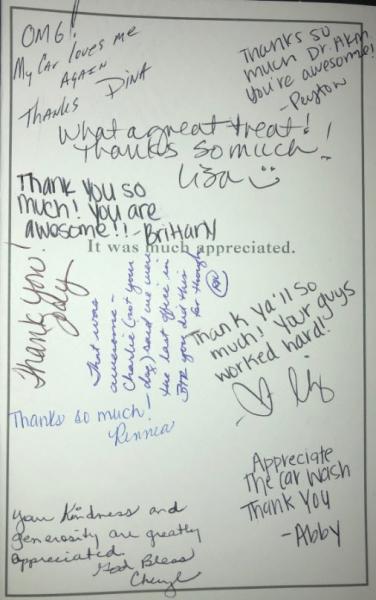 OMG!
My Car loves me
AGAIN
THANKS DINA
Thanks so
much Dr. Akin
You're awesome!
-Peyton
What a great treat!
Thanks so much!
Lisa
Thank you so
much! You are
awesome!! -Brittany
It was much appreciated.
Thank you!
Jody
That was
awesome-
Charlie (not your
dog) said we were
the last office in
BTR you did this
for though
Thank ya'll so
much! Your guys
worked hard!
Thanks so much!
Rennea
Appreciate
The car wash
Thank you
-Abby
Your kindness and
generosity are greatly
appreciated.
God Bless
Cheryl